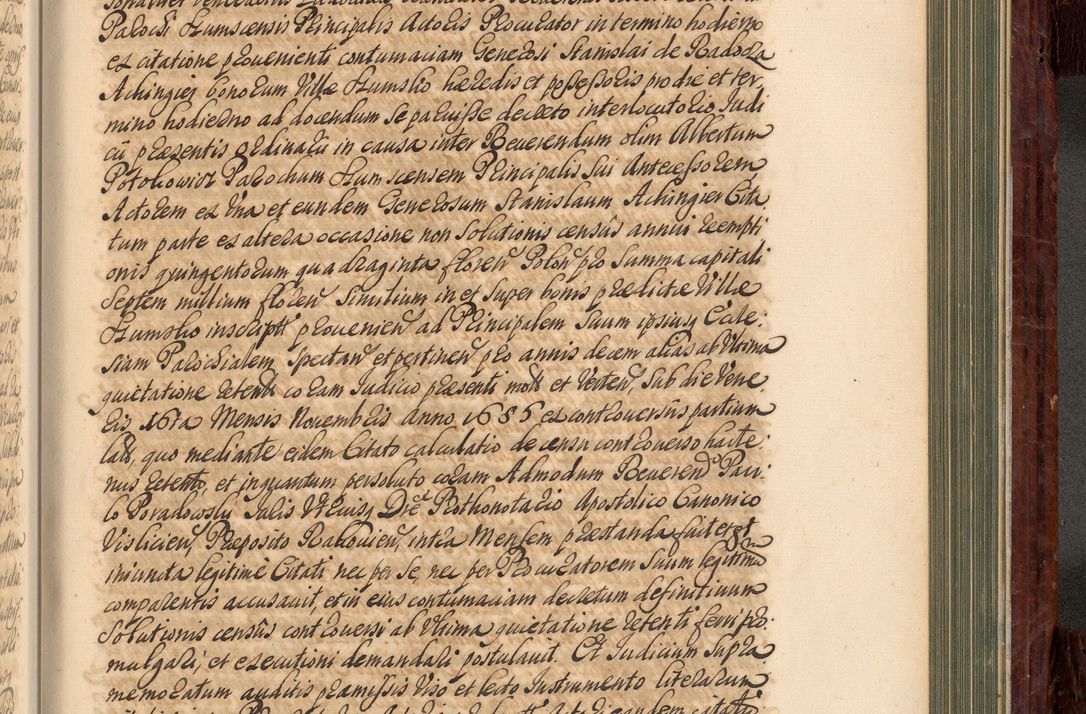 Parochi Humscensis Principalis Actoris Procurator in termino hodierno
ex citatione provenienti contumaciam Generosi Stanislai de Radocza
Achingier bonorum Villæ Humsko hæredis et possessoris pro die et ter
mino hodierno ad docendum se paruisse decreto interlocutorio Judi
cii præsentis ordinarii in causa inter Reverendum olim Albertum
Potokowicz Parochum Humscensem Principalis sui Antecessorem
Actorem ex una et eundem Generosum Stanislaum Achingier Cita
tum parte ex altera occasione non solutionis census annui reempti
onis quingentorum quadraginta floren Polon pro summa capitali
septem millium floren similium in et super bonis prædictæ Villæ
Humsko inscript provenien ad Principalem suum ipsiusq Eccle:
siam Parochialem spectan et pertinen pro annis decem alias ab ultima
quietatione retent coram Judicio præsenti mott et verten, sub die Vene
ris 16ta Mensis Novembris anno 1685 ex controversiis partium
lat, quo mediante eidem Citato calculatio de censu controverso hacte:
nus retento, et inquantum persoluto coram Admodum Reverendo Pau:
lo Poradowsky Juris Utriusq Dre Prothonotario Apostolico Canonico
Vislicien, Præposito Rakovien, intra Mensem præstanda facit et
iniuncta legitime Citati nec per se, nec per Procuratorem suum legitimu
comparentis accusavit, et in eius contumaciam decretum definitivum
solutionis census controversi ab ultima quietatione retenti ferri pro:
mulgari, et executioni demandari postulavit. Et Judicium supra
memoratum auditis præmissis viso et lecto Instrumento literarum